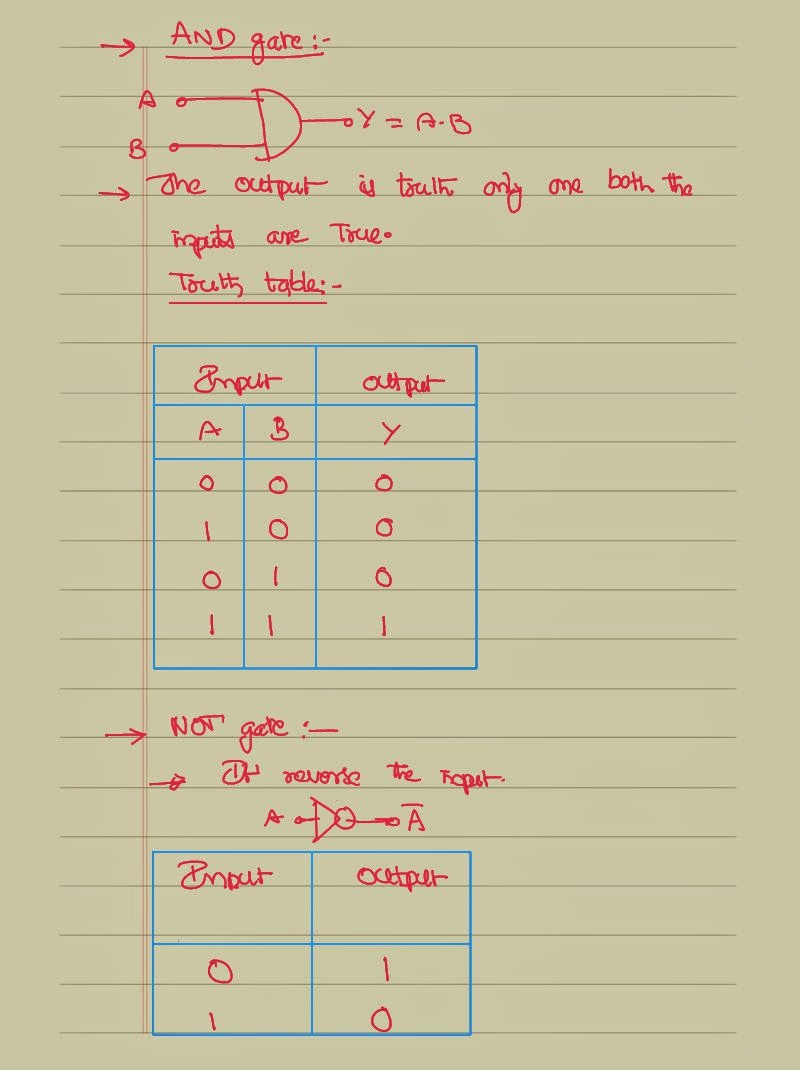 → AND gate:-
A
Y = A·B
B
→ The output is truth only one both the
inputs are True.
Truth table:-
Input output
A B Y
0 0 0
1 0 0
0 1 0
1 1 1
→ NOT gate :-
→ It reverse the input.
A A̅
Input output
0 1
1 0